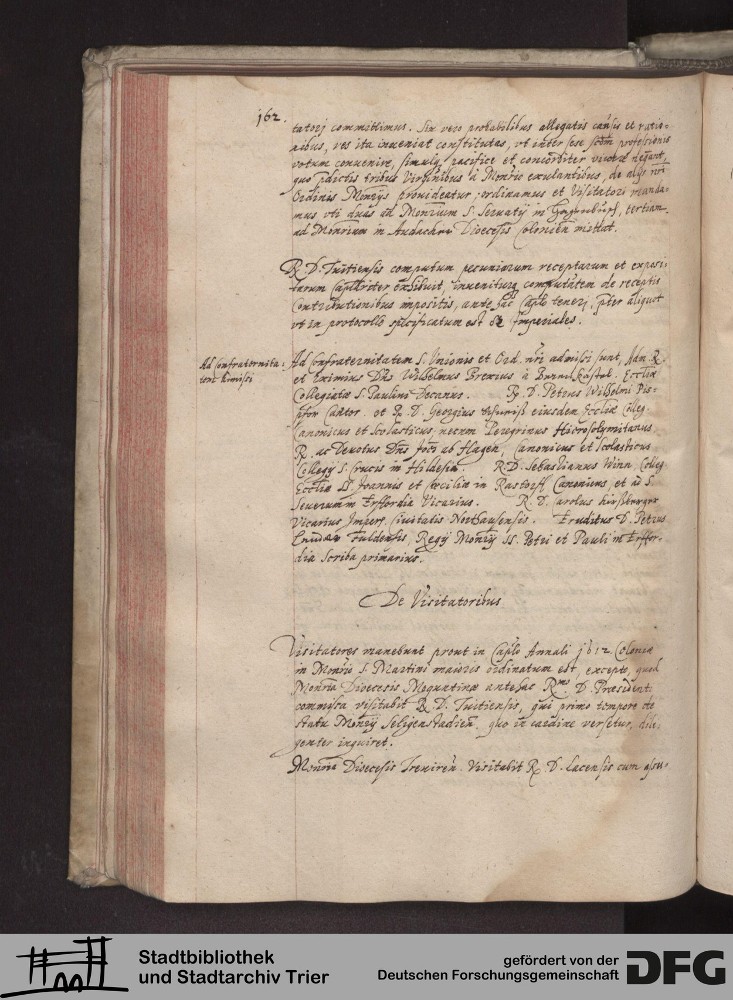 162.
tatorj committimus. Sin vero probabilibus allegatis causis et ratio-
nibus, res ita inueniat constitutas, vt inter sese scdm professionis
votum conuenire, simulq pacifice et concorditer viuere negant,
quo pdictis tribus Virginibus à Monrio exulantibus, de alijs nri
Ordinis Monrijs prouideatur, ordinamus et Visitatori manda-
mus vti duas ad Monrium S. Seruatij in, tertiam
ad Monrium in Andach Diocesis Colonien mittat.
R. D. Tuitiensis computum pecuniarum receptarum et exposi-
tarum Caplariter exhibuit, inueniturq computatem de receptis
Contributionibus impositis, ante hac Caplo teneri, pter aliquot
vt in protocollo specificatum est Imperiales.
Ad Confraternita-
tem admissi
Ad Confraternitatem S. Unionis et Ord. nri admissi sunt, Adm. R.
et Eximius Dns Wilhelmus Brexius à, Ecclia
Collegiatæ S. Paulini Decanus. D. Petrus Wilhelmi Pis-
Cantor. et R. D. Georgius eiusdem Eccliæ Colleg.
Canonicus et Scolasticus, necnon Peregrinus Hierosolymitanus,
R. ac Deuotus Dns Jocs ab Hagen, Canonicus et Scolasticus
Collegij S. Crucis in Hildesia. R. D. Sebastianus Winn, Colleg
Eccliæ SS. Joannis et Cæciliæ in Rastorff Canonicus et ad S.
Seuerum in Erffordia Vicarius. R. D. Carolus
Vicarius Imper. Ciuitatis Northusensis. Eruditus D. Petrus
Fuldensis, Regij Monrij SS. Petri et Pauli in Erffor-
dia Scriba primarius.
De Visitatoribus
Visitatores manebunt prout in Caplo Annali 1612. Coloniæ
in Monrio S. Martini maioris ordinatum est, excepto, quod
Monria Diocesis Moguntinæ antehac Rmo D. Præsident
commissa visitabit R. D. Tuitiensis, qui primo tempore de
statu Monrij Seligenstadien, quo in cardine versetur, dili-
genter inquiret.
Monria Diocesis Treuiren Visitabit R. D. Lacensis cum assu-
Stadtbibliothek
und Stadtarchiv Trier
gefördert von der
Deutschen Forschungsgemeinschaft
DFG